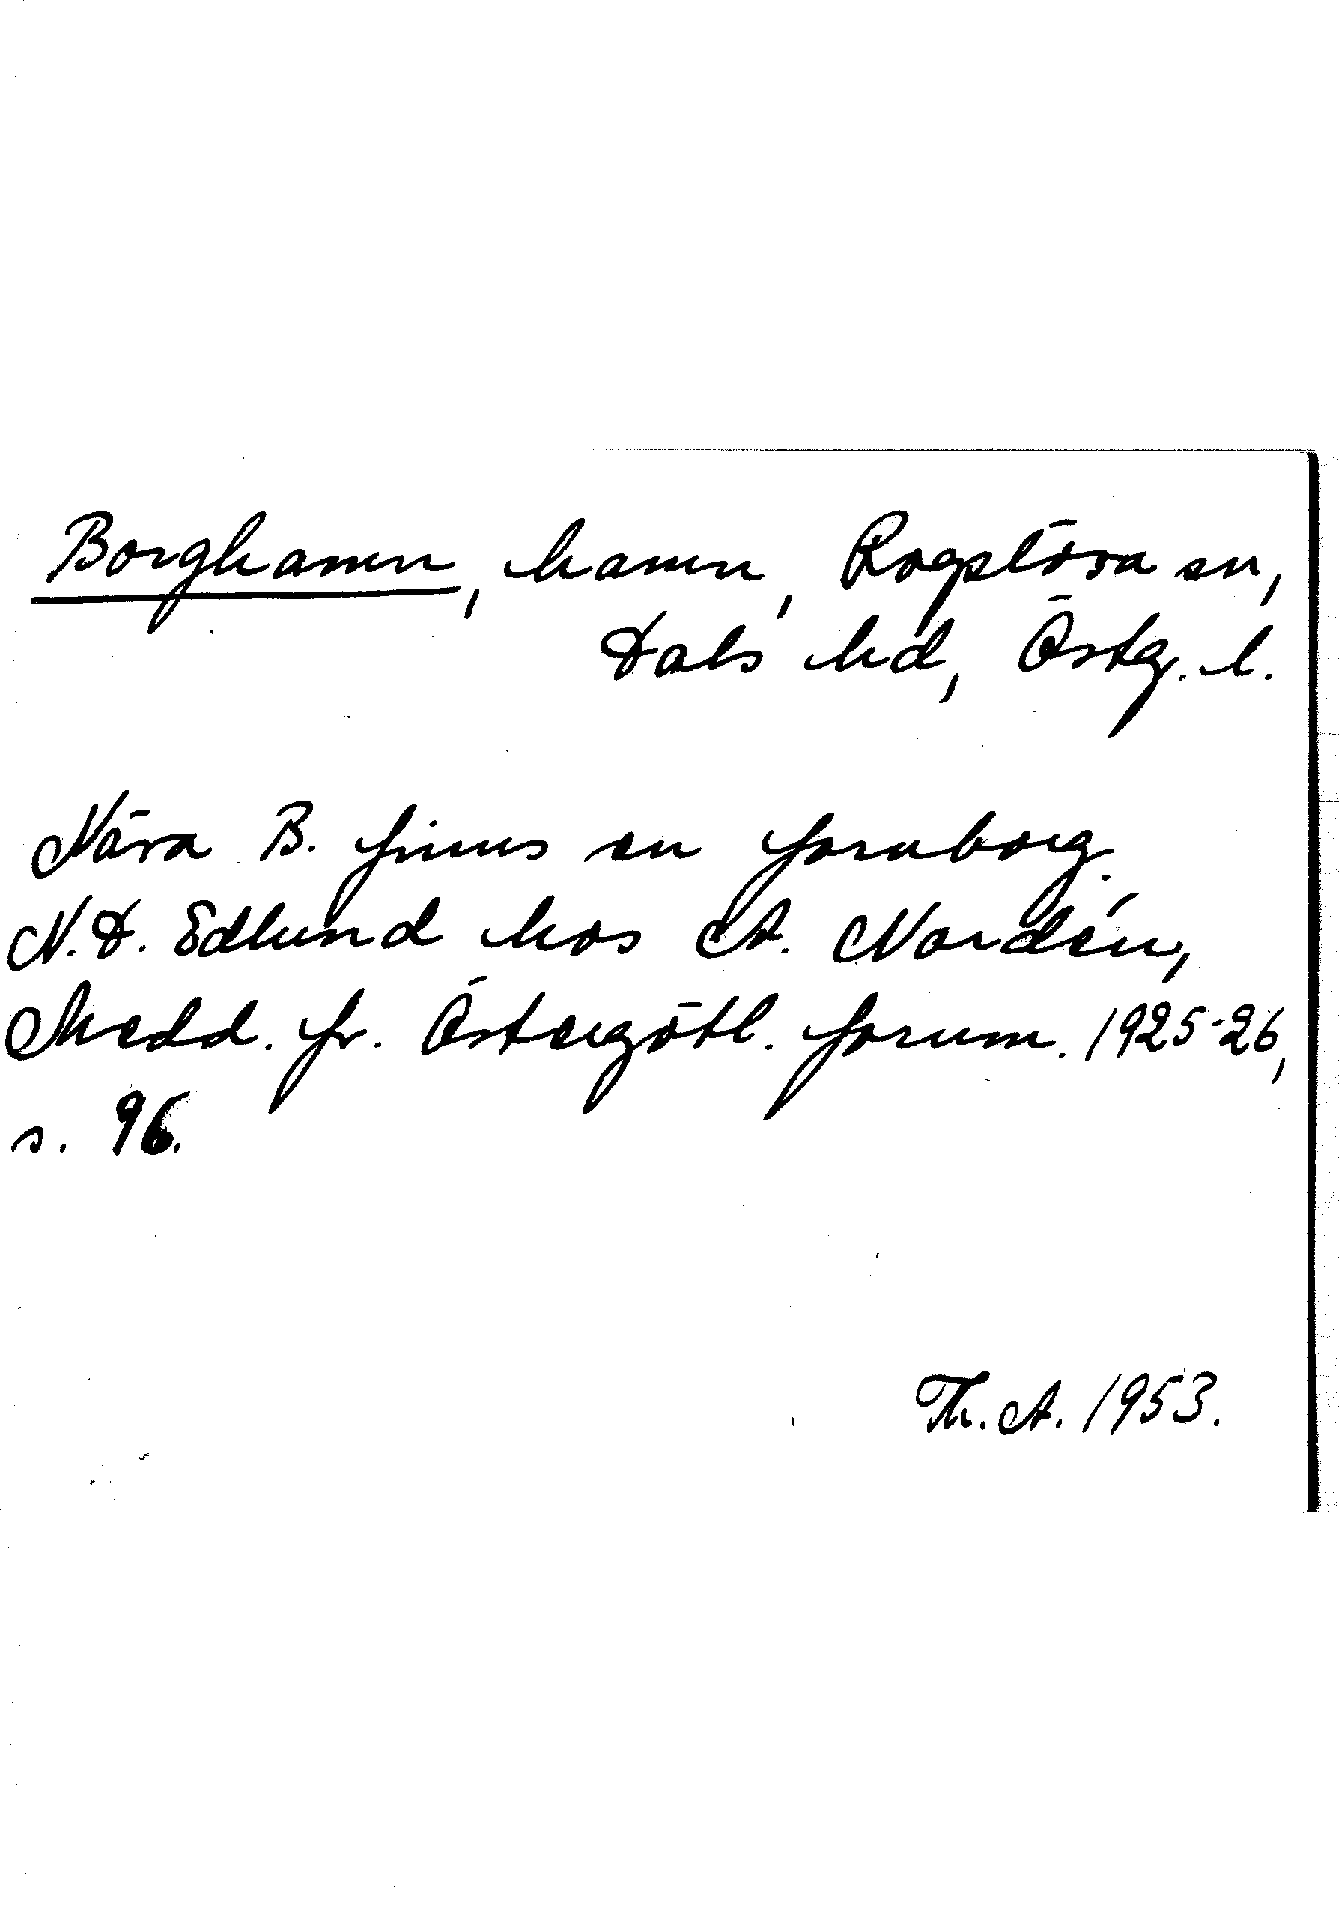 Borghamn, hamn, Rogslösa sn,
Dals hd, Östg. l.
Nära B. finns en fornborg.
N.D. Edlund hos A. Nordén,
Medd. fr. Östergötl. fornm. 1925-26,
s. 96.
Th. A. 1953.